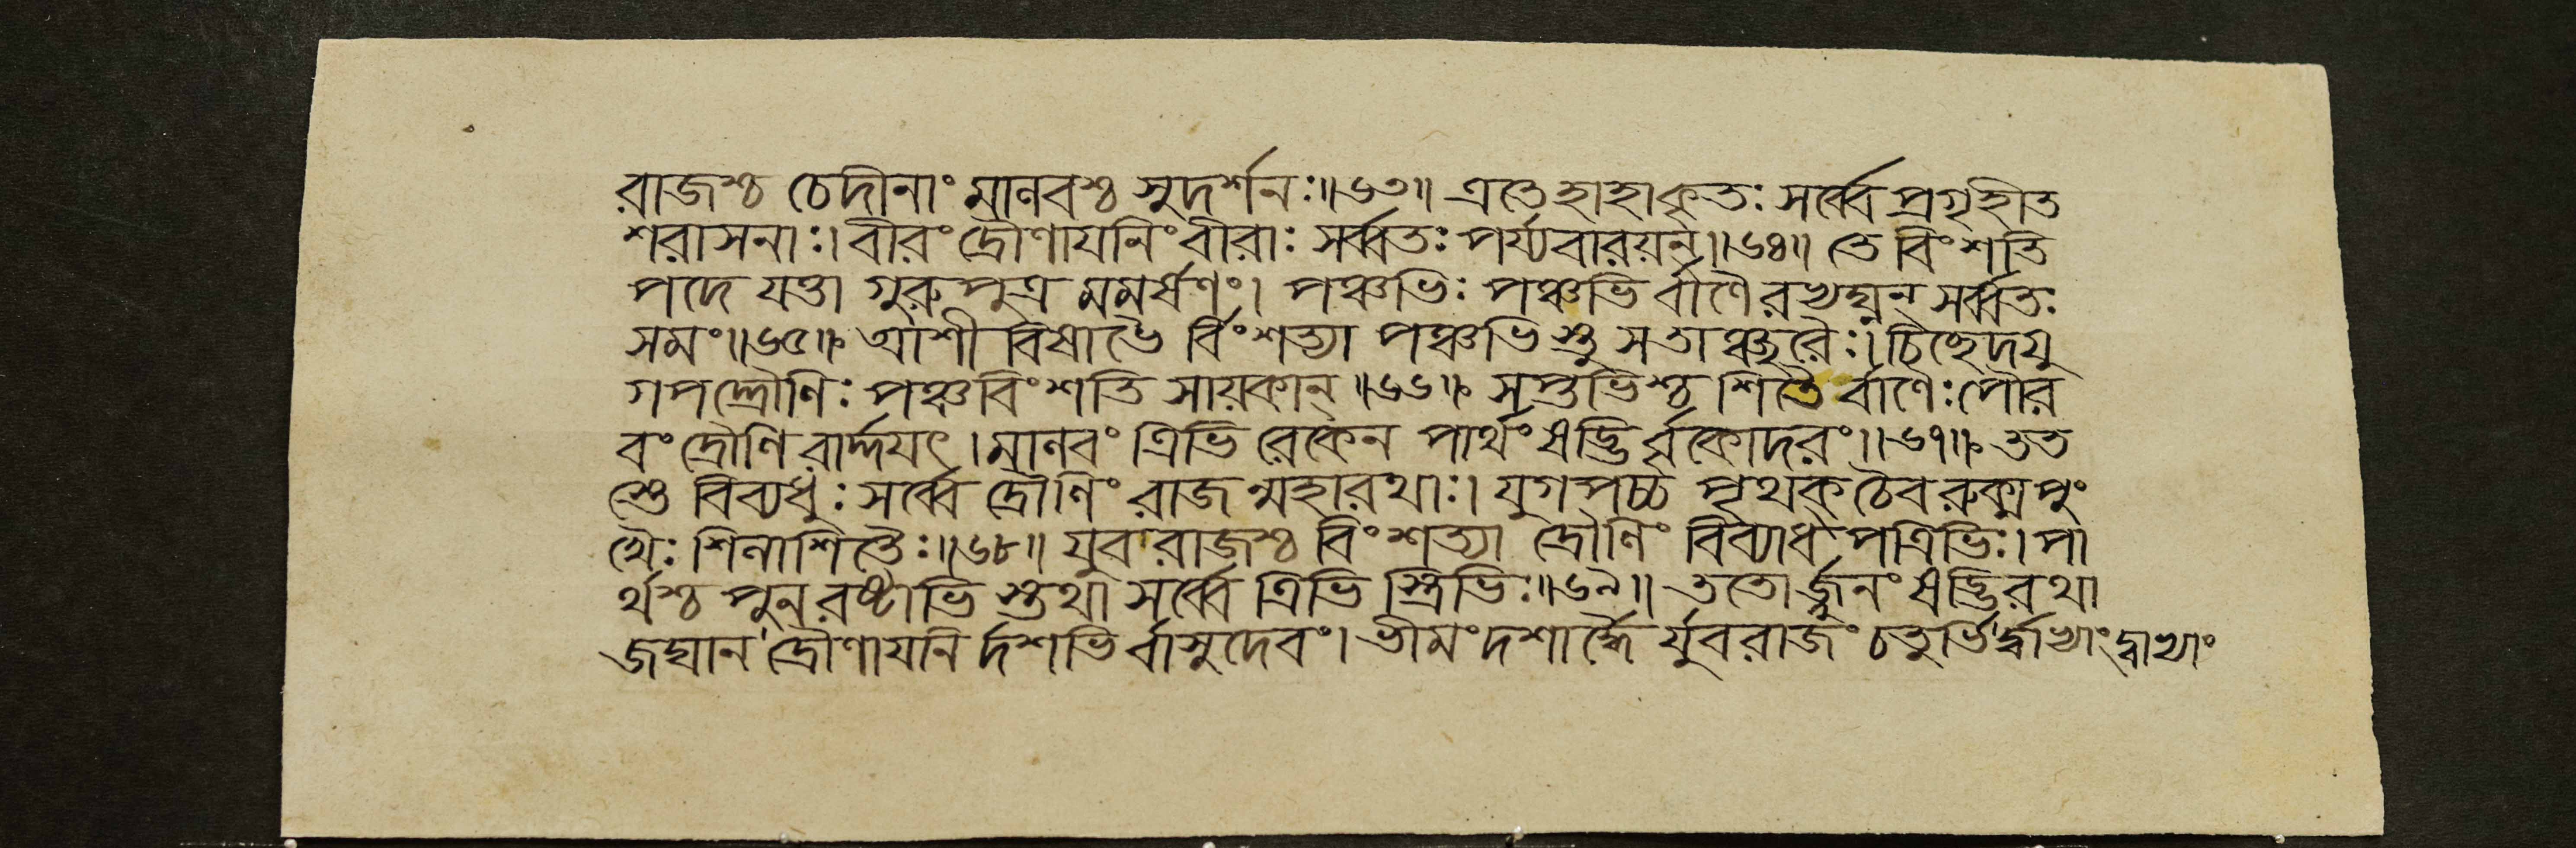 রাজশ্চ চেদীনাং মাণবশ্চ সুদর্শনঃ॥৬৩॥ এতে হাহাকৃতঃ সর্ব্বে প্রগৃহীত
শরাসনাঃ। বীরং দ্রৌণাযনিং বীরাঃ সর্ব্বতঃ পর্য্যবারয়ন্॥৬৪॥ তে বিংশতি
পদে যত্তা গুরুপুত্র মমর্ষণং। পঞ্চভিঃ পঞ্চভি র্বাণৈ রভ্যঘ্নন্ সর্ব্বতঃ
সমং॥৬৫॥ আশীবিষাভৈ র্বিংশত্যা পঞ্চভি স্তু সতাঞ্ছরৈঃ। চিচ্ছেদ যু
গপদ্দ্রৌণিঃ পঞ্চবিংশতি সায়কান্॥৬৬॥ সপ্তভিশ্চ শিতৈ র্বাণৈঃ পৌর
বং দ্রৌণি রার্দ্দযৎ। মানবং ত্রিভি রেকেন পার্থং ষড্ভি র্বৃকোদরং॥৬৭॥ তত
স্তে বিব্যধুঃ সর্ব্বে দ্রৌণিং রাজ ন্মহারথাঃ। যুগপচ্চ পৃথক্ চৈব রুক্মপুং
খৈঃ শিলাশিতৈঃ॥৬৮॥ যুবরাজশ্চ বিংশত্যা দ্রৌণিং বিব্যাধ পত্রিভিঃ। পা
র্থশ্চ পুনরষ্টাভি স্তথা সর্ব্বে ত্রিভি স্ত্রিভিঃ॥৬৯॥ ততোর্জ্জুনং ষড্ভিরথা
জঘান দ্রৌণাযনি র্দশভি র্বাসুদেবং। ভীমং দশার্দ্ধৈ র্যুবরাজং চতুর্ভি র্দ্বাভ্যাং দ্বাভ্যাং